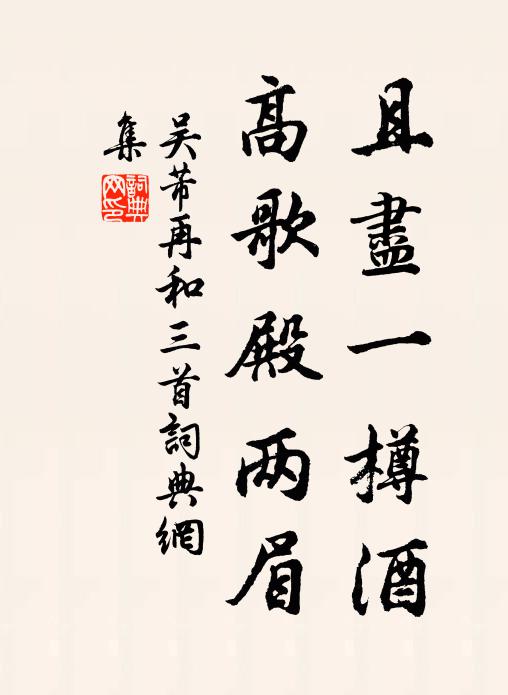 且盡一樽酒
高歌殿两眉
吴芾再和三首詞典網
集
詞典網印